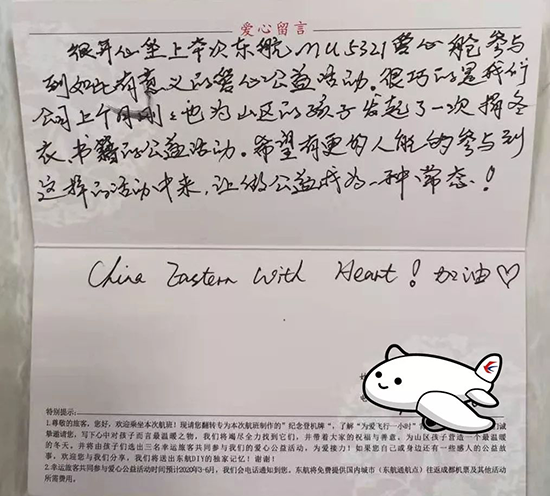 爱心留言
很开心坐上本次东航MU5321爱心舱参与
到如此有意义的爱心公益活动。很巧的是我们
公司上个月刚刚也为山区的孩子发起了一次捐冬
衣、书籍的公益活动。希望有更多人能够参与到
这样的活动中来,让做公益成为一种常态!
China Eastern With Heart! 加油♡
特别提示:
1.尊敬的旅客,您好,欢迎乘坐本次航班!现请您翻转专为本次航班制作的"纪念登机牌",了解"为爱飞行一小时"
挚邀请您,写下心中对孩子而言最温暖之物,我们将竭尽全力找到它们,并带着大家的祝福与善意,为山区孩子营造一个最温暖
的冬天。并将由孩子们选出三名幸运旅客共同参与我们的爱心公益活动,为爱接力!如果您自己或身边还有一些感人的公益故
事,欢迎您与我们分享,我们将送出东航DIY的独家记忆!谢谢!
2.幸运旅客共同参与爱心公益活动时间预计2020年3-6月,我们会电话通知到您。东航将免费提供国内城市(东航通航点)往返成都机票及其他活动
所需费用。